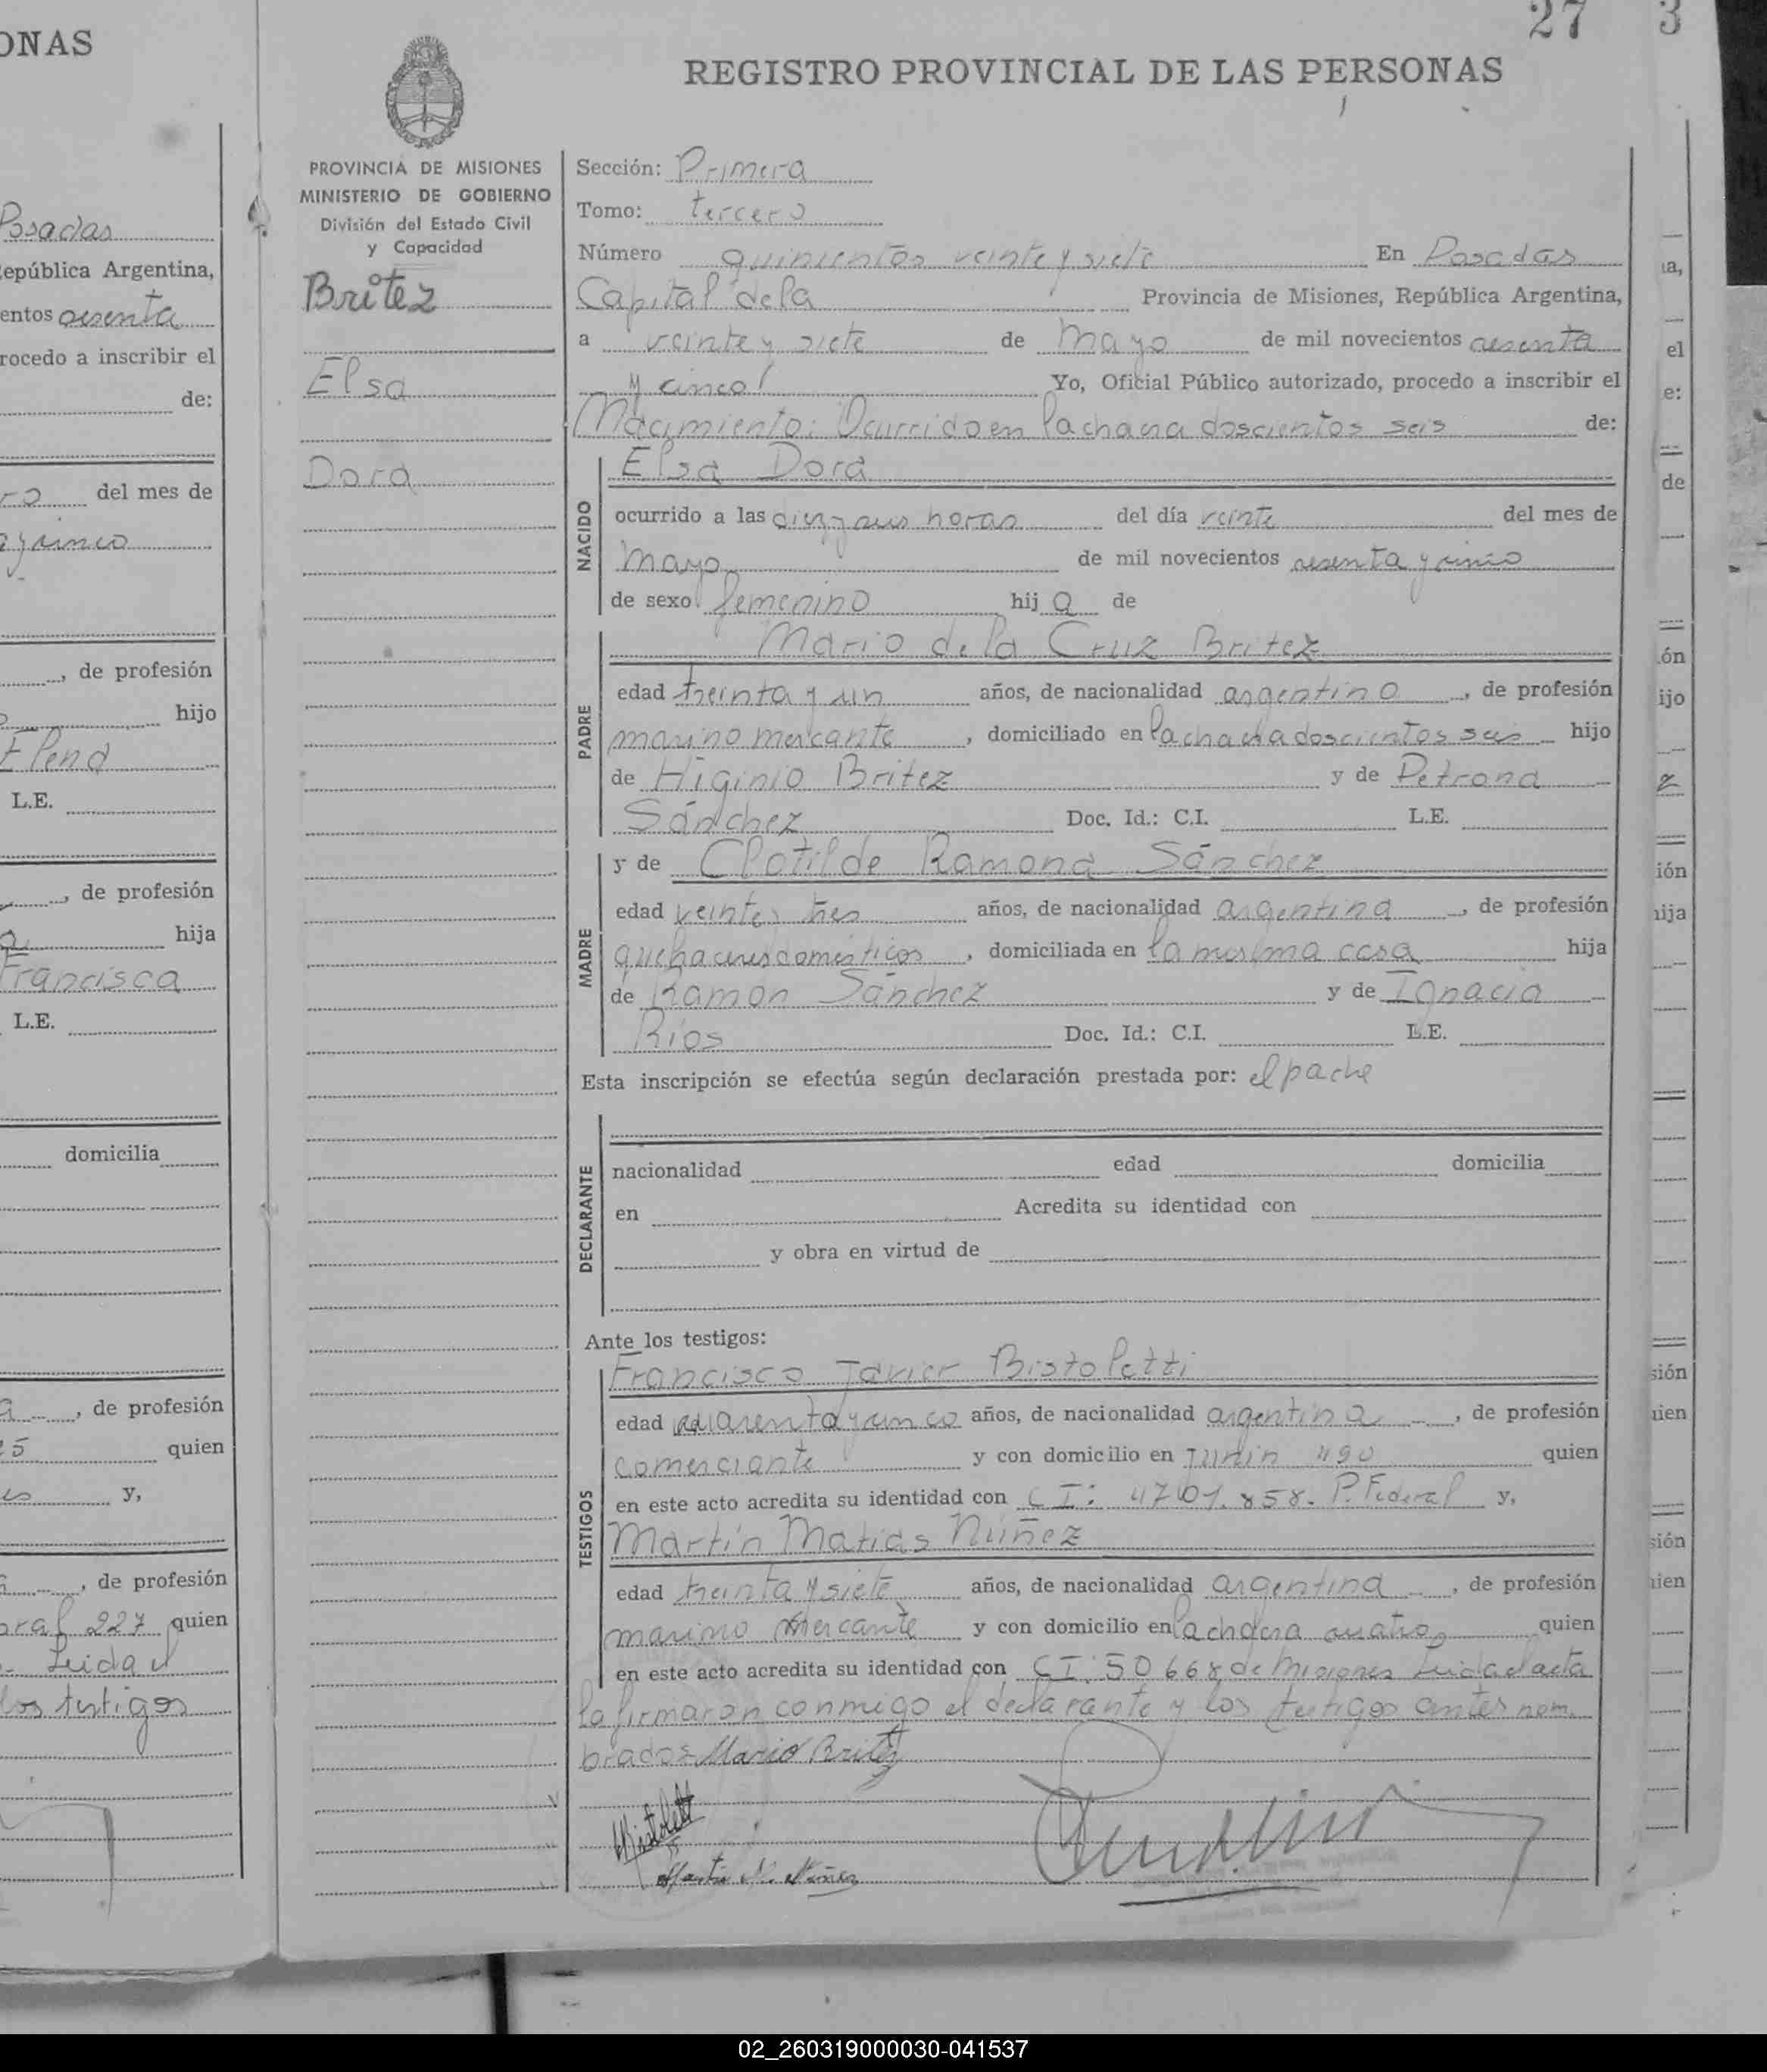 27
3
ONAS
REGISTRO PROVINCIAL DE LAS PERSONAS
PROVINCIA DE MISIONES
MINISTERIO DE GOBIERNO
División del Estado Civil
y Capacidad
Britez
Elsa
Dora
Sección: Primera
Tomo: tercero
Número quinientos veinte y siete En Posadas
Capital de la Provincia de Misiones, República Argentina,
a veinte y siete de Mayo de mil novecientos sesenta
y cinco Yo, Oficial Público autorizado, procedo a inscribir el
Nacimiento: Ocurrido en la chacra doscientos seis de:
NACIDO
Elsa Dora
ocurrido a las diez y seis horas del día veinte del mes de
mayo de mil novecientos sesenta y cinco
de sexo femenino hij a de
PADRE
Mario de la Cruz Britez
edad treinta y un años, de nacionalidad argentino, de profesión
marino mercante, domiciliado en la chacra doscientos seis hijo
de Higinio Britez y de Petrona
Sánchez Doc. Id.: C.I. L.E.
MADRE
y de Clotilde Ramona Sánchez
edad veinte y tres años, de nacionalidad argentina, de profesión
quehaceres domésticos, domiciliada en la misma casa hija
de Ramón Sánchez y de Ignacia
Ríos Doc. Id.: C.I. L.E.
Esta inscripción se efectúa según declaración prestada por: el padre
DECLARANTE
nacionalidad edad domicilia
en Acredita su identidad con
y obra en virtud de
Ante los testigos:
TESTIGOS
Francisco Javier Bistoletti
edad cuarenta y cinco años, de nacionalidad argentina, de profesión
comerciante y con domicilio en Junín 490 quien
en este acto acredita su identidad con CI: P. Federal y,
Martín Matias Núñez
edad treinta y siete años, de nacionalidad argentina, de profesión
marino mercante y con domicilio en la chacra cuatro quien
en este acto acredita su identidad con CI: 50668 de Misiones Leida el acta
la firmaron conmigo el declarante y los testigos antes nom
brados Mario Britez
Bistoletti
Martín M. Núñez
Posadas
República Argentina,
entos sesenta
rocedo a inscribir el
de:
del mes de
y cinco
, de profesión
hijo
Elena
L.E.
, de profesión
hija
Francisca
L.E.
domicilia
, de profesión
quien
y,
, de profesión
227 quien
Leida el
los testigos
02_260319000030-041537